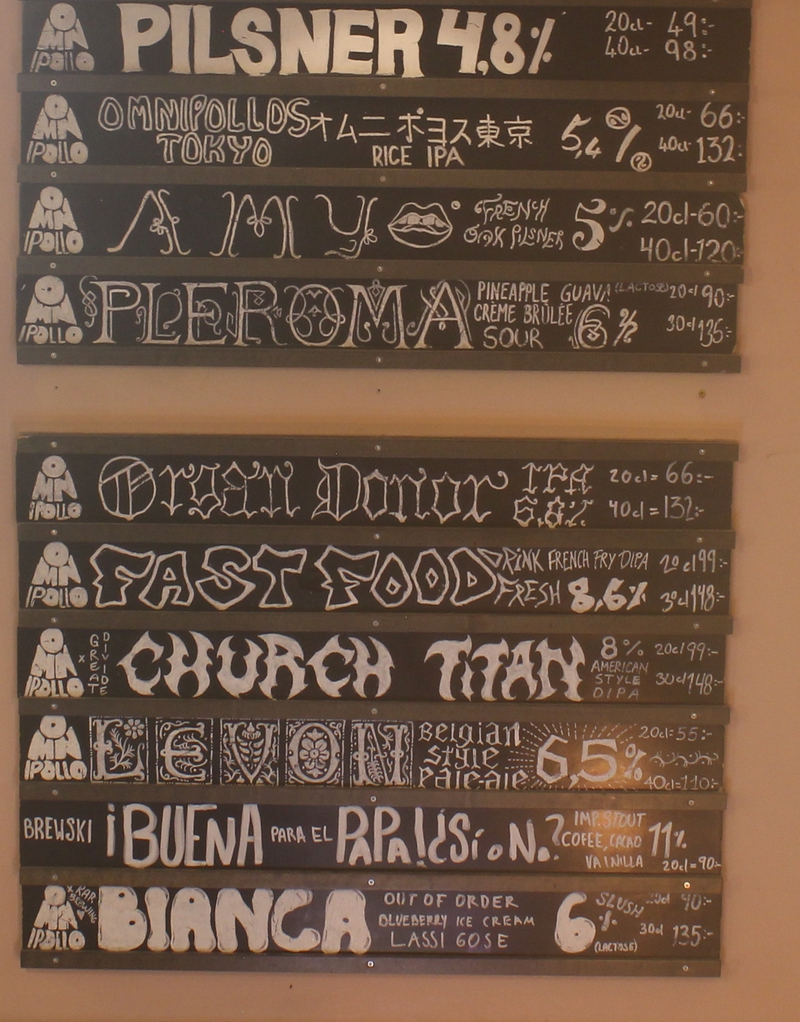 OMNIPOLLO PILSNER 4,8% 20cl- 49:-
40cl- 98:-
OMNIPOLLO OMNIPOLLOS オムニポヨス東京 5,4% 20cl- 66:-
TOKYO RICE IPA 40cl- 132:-
OMNIPOLLO AMY FRENCH 5% 20cl-60:-
OAK PILSNER 40cl-120:-
OMNIPOLLO PLEROMA PINEAPPLE GUAVA (LACTOSE) 20cl 90:-
CRÈME BRÛLÉE 6%
SOUR 30cl 135:-
OMNIPOLLO Organ Donor IPA 20cl= 66:-
6,8% 40cl=132:-
OMNIPOLLO FAST FOOD DRINK FRENCH FRY DIPA 20cl 99:-
FRESH 8,6% 30cl 148:-
OMNIPOLLO x GREAT DIVIDE CHURCH TITAN 8% 20cl 99:-
AMERICAN 30cl 148:-
STYLE
DIPA
OMNIPOLLO LEVON Belgian 6,5% 20cl=55:-
Style
Pale ale 40cl=110:-
BREWSKI ¡BUENA PARA EL PAPALUSioN.? IMP. STOUT 11%
COFEE, CACAO
VAINILLA 20cl=90:-
OMNIPOLLO BREWING BIANCA OUT OF ORDER 6% SLUSH 20cl 90:-
BLUEBERRY ICE CREAM
LASSI GOSE (LACTOSE) 30cl 135:-